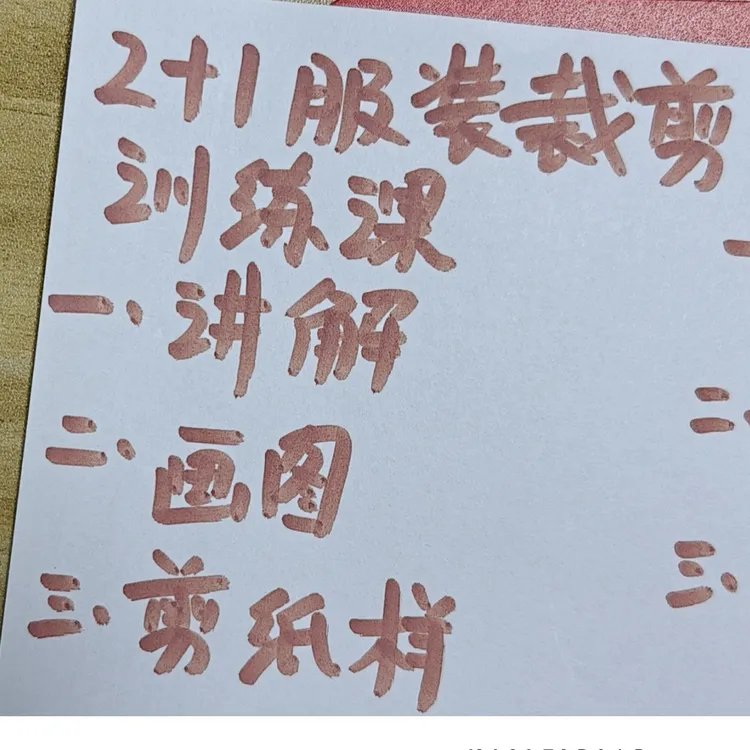 2+1服装裁剪
训练课
一、讲解
二、画图
三、剪纸样
一
二、
三、